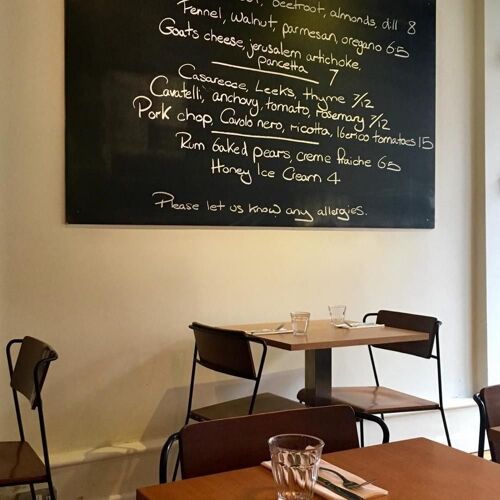 beetroot, almonds, dill 8
Fennel, walnut, parmesan, oregano 65
Goats cheese, jerusalem artichoke,
pancetta 7
Casarecce, Leeks, thyme 7/12
Cavatelli, anchovy, tomato, rosemary 7/12
Pork chop, Cavolo nero, ricotta, Iberico tomatoes 15
Rum baked pears, creme fraiche 65
Honey Ice Cream 4
Please let us know any allergies.